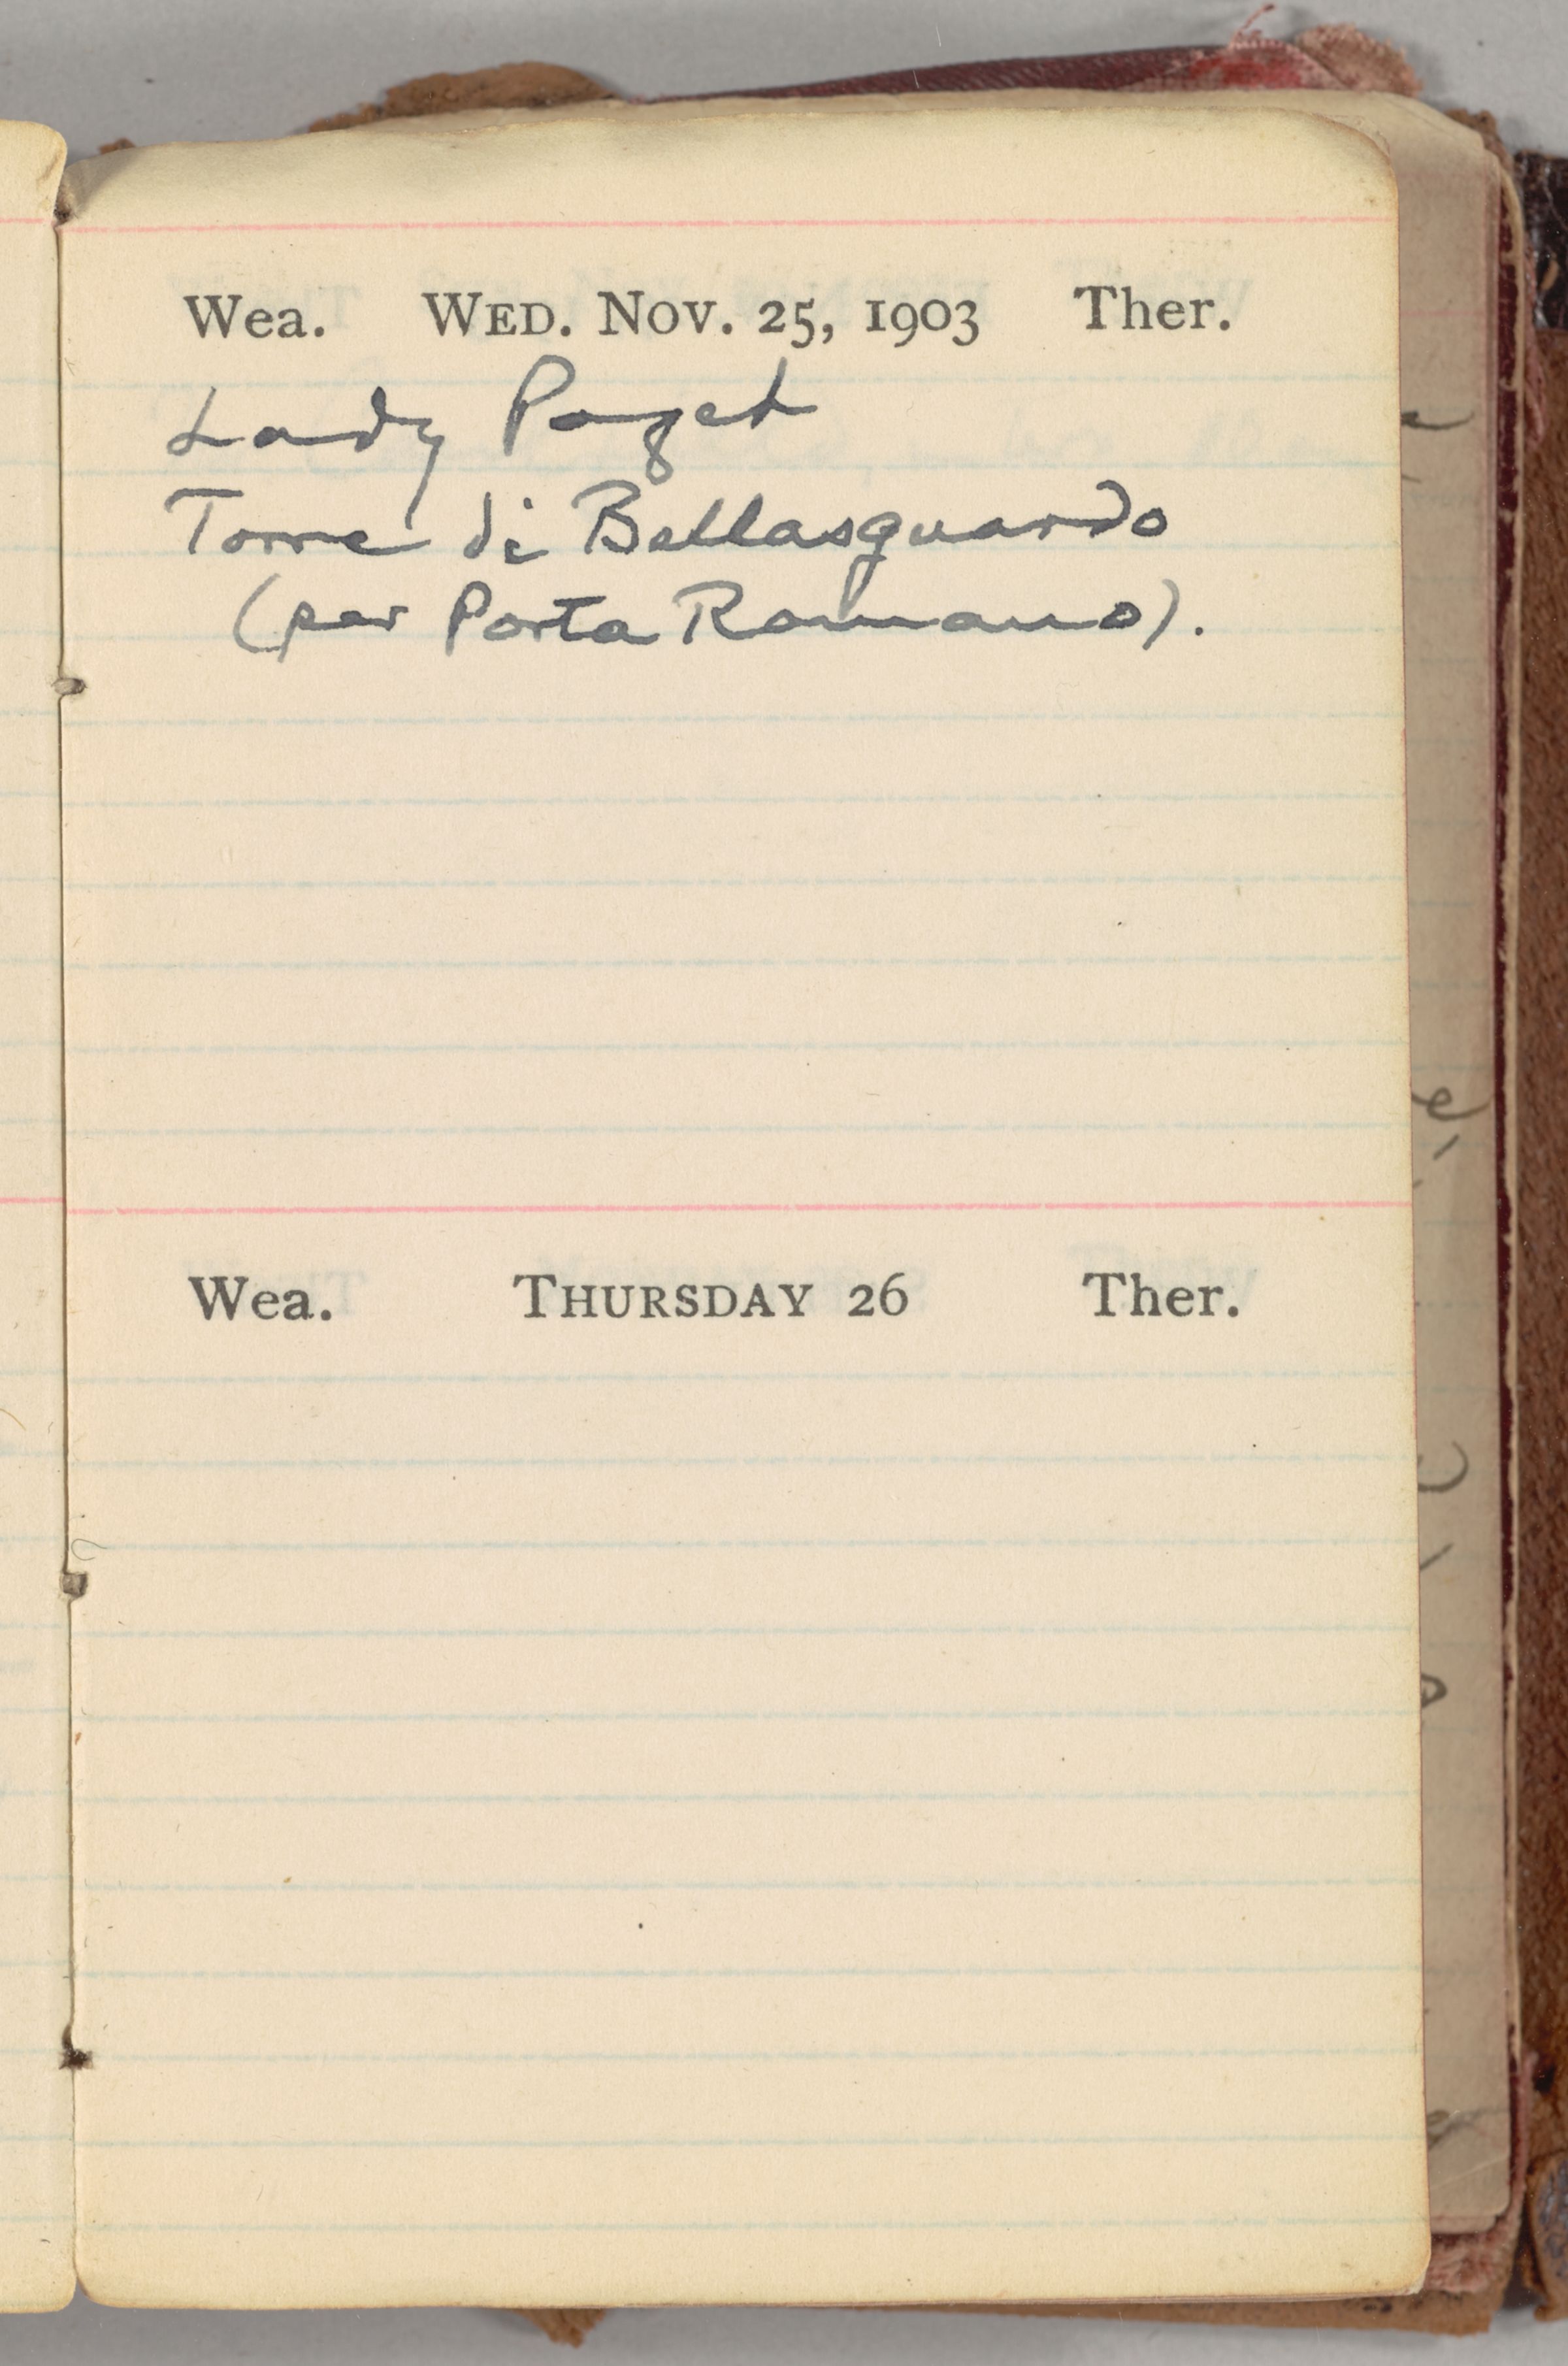 Wea. WED. NOV. 25, 1903 Ther.
Lady Paget
Torre di Bellosguardo
(per Porta Romano).
Wea. THURSDAY 26 Ther.